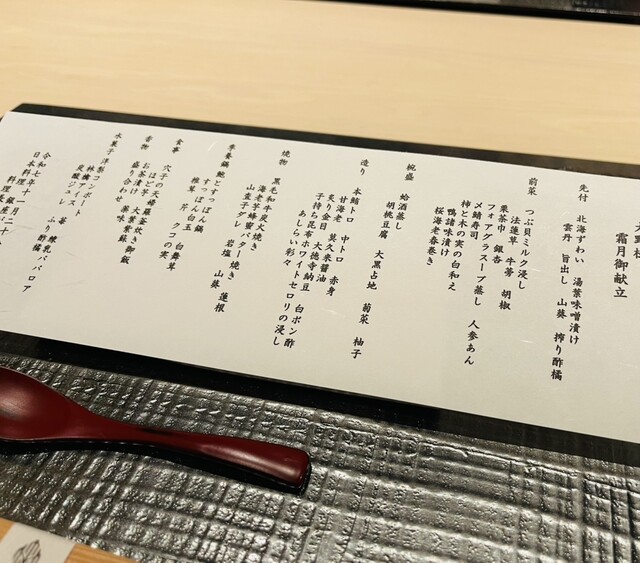 霜月御献立
先付 北海ずわい 湯葉味噌漬け
雲丹 旨出し 山葵 搾り酢橘
前菜 つぶ貝ミルク浸し
法蓮草 牛蒡 胡椒
栗茶巾 銀杏
フォアグラスープ蒸し 人参あん
〆鯖寿司
柿と木の実の白和え
鴨味噌漬け
桜海老春巻き
椀盛 蛤酒蒸し
胡桃豆腐 大黒占地 菊菜 柚子
造り 本鮪トロ 中トロ 赤身
甘海老 莫久来醤油
炙り金目 大徳寺納豆 白ポン酢
子持ち昆布ホワイトセロリの浸し
あしらい彩々
焼物 黒毛和牛炭火焼き
海老芋蜂蜜バター焼き
山葵子ダレ 岩塩 山葵 蓮根
季養鍋 鮑とすっぽん鍋
すっぽん白玉
椎茸 芹 クコの実 白舞茸
食事 穴子の天婦羅釜炊き御飯
ほど芋 大葉 紫蘇
お茶漬け 薬味
香物 盛り合わせ
水菓子 洋梨コンポート
林檎アイス 苺 練乳ババロア
炭酸ジュレ ふり酢橘
令和七年十一月二日
日本料理